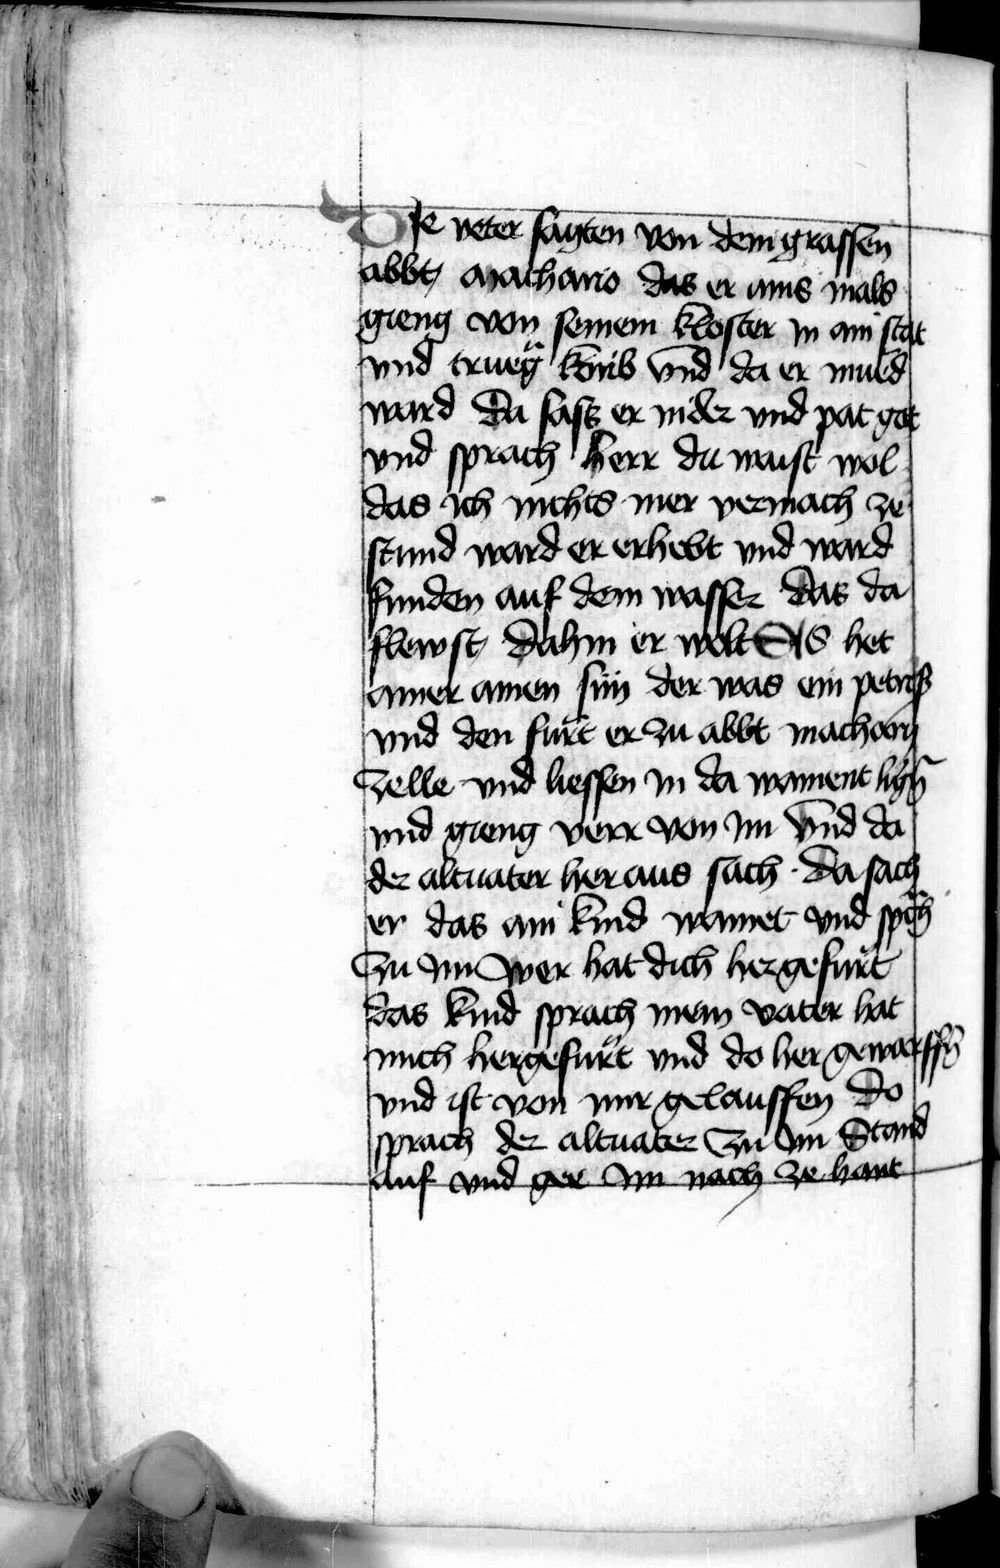 Die veter sagten von dem grassen
abbt Machario das er ains mals
gieng von seinem kloster in ain stat
vnd trueg körib vnd da er mued
ward Da sasz er nider vnd pat got
vnd sprach herr du waist wol
das ich nichts mer vermach ze
stund ward er erhebt vnd ward
funden auf dem wasser das da
flewst dahin er wolt Es het
ainer ainen sun der was ein petris
vnd den furt er zu abbt machary
zelle vnd liessen in da wainent
vnd gieng verr von im vnd da
der altuater her aus sach · Da sach
er das ain kind wainet vnd sprach
zu im Wer hat dich hergefurt
das kind sprach mein vater hat
mich hergefürt vnd do her geworffn
vnd ist von mir gelauffen Do
sprach der altuater zu im Stand
auf vnd gee im nach ze hant